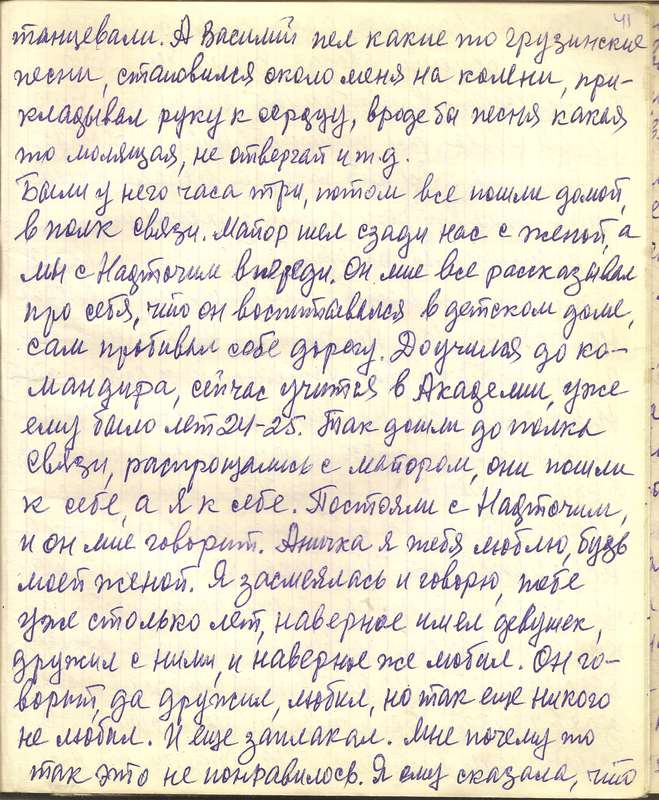 41
танцевали. А Василий пел какие то грузинские
песни, становился около меня на колени, при-
кладывал руку к сердцу, вроде бы песня какая
то молящая, не отвергай и т.д.
Были у него часа три, потом все пошли домой,
в полк связи. Майор шел сзади нас с женой, а
мы с Надточим впереди. Он мне все рассказывал
про себя, что он воспитывался в детском доме,
сам пробивал себе дорогу. Доучился до ко-
мандира, сейчас учится в Академии, уже
ему было лет 24-25. Так дошли до полка
связи, распрощались с майором, они пошли
к себе, а я к себе. Постояли с Надточим,
и он мне говорит. Аничка я тебя люблю, будь
моей женой. Я засмеялась и говорю, тебе
уже столько лет, наверное имел девушек,
дружил с ними, и наверное же любил. Он го-
ворит, да дружил, любил, но так еще никого
не любил. И еще заплакал. Мне почему то
так это не понравилось. Я ему сказала, что